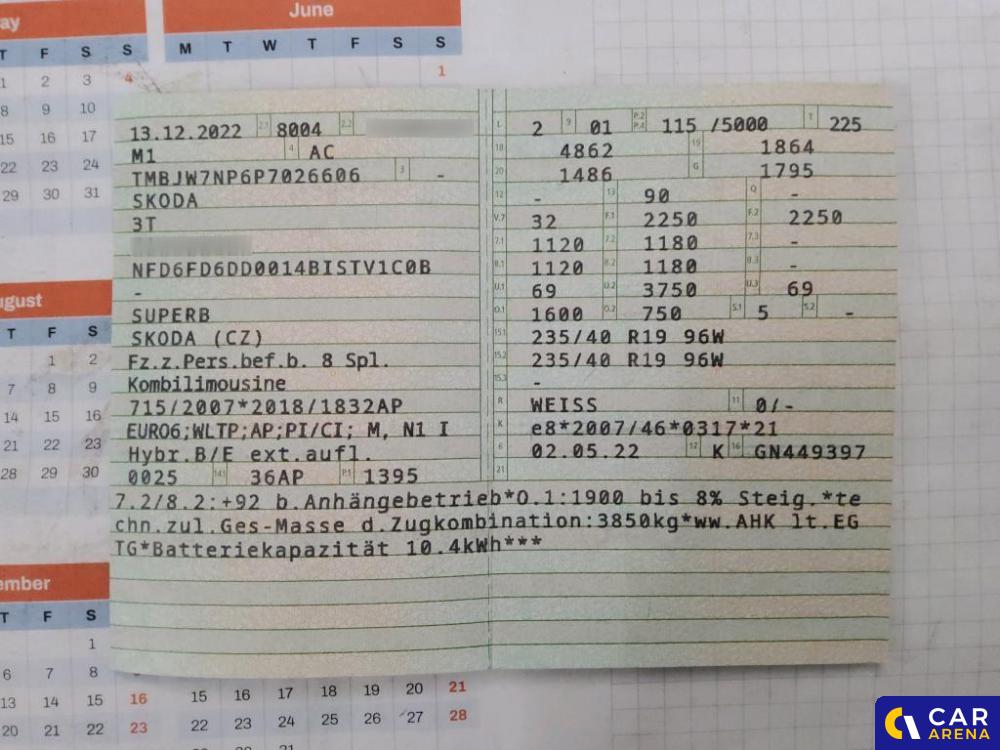 June
ay
T F S S M T W T F S S
1 2 3 4 1
8 9 10
15 16 17
22 23 24
29 30 31
ugust
T F S
1 2
7 8 9
14 15 16
21 22 23
28 29 30
ember
T F S
1
6 7 8
13 14 15 16 15 16 17 18 19 20 21
20 21 22 23 22 23 24 25 26 27 28
13.12.2022 2.1 8004 2.2
M1 4 AC
TMBJW7NP6P7026606 3 -
SKODA
3T
NFD6FD6DD0014BISTV1C0B
-
SUPERB
SKODA (CZ)
Fz.z.Pers.bef.b. 8 Spl.
Kombilimousine
715/2007*2018/1832AP
EURO6;WLTP;AP;PI/CI; M, N1 I
Hybr.B/E ext.aufl.
0025 14.1 36AP P.1 1395
L 2 9 01 P.2 P.4 115 /5000 T 225
18 4862 19 1864
20 1486 G 1795
12 - 13 90 Q -
V.7 32 F.1 2250 F.2 2250
7.1 1120 7.2 1180 7.3 -
8.1 1120 8.2 1180 8.3 -
U.1 69 U.2 3750 U.3 69
O.1 1600 O.2 750 S.1 5 S.2 -
15.1 235/40 R19 96W
15.2 235/40 R19 96W
15.3 -
R WEISS 11 0/-
K e8*2007/46*0317*21
6 02.05.22 17 K 16 GN449397
21
7.2/8.2:+92 b.Anhängebetrieb*O.1:1900 bis 8% Steig.*te
chn.zul.Ges-Masse d.Zugkombination:3850kg*ww.AHK lt.EG
TG*Batteriekapazität 10.4kWh***
CAR
ARENA